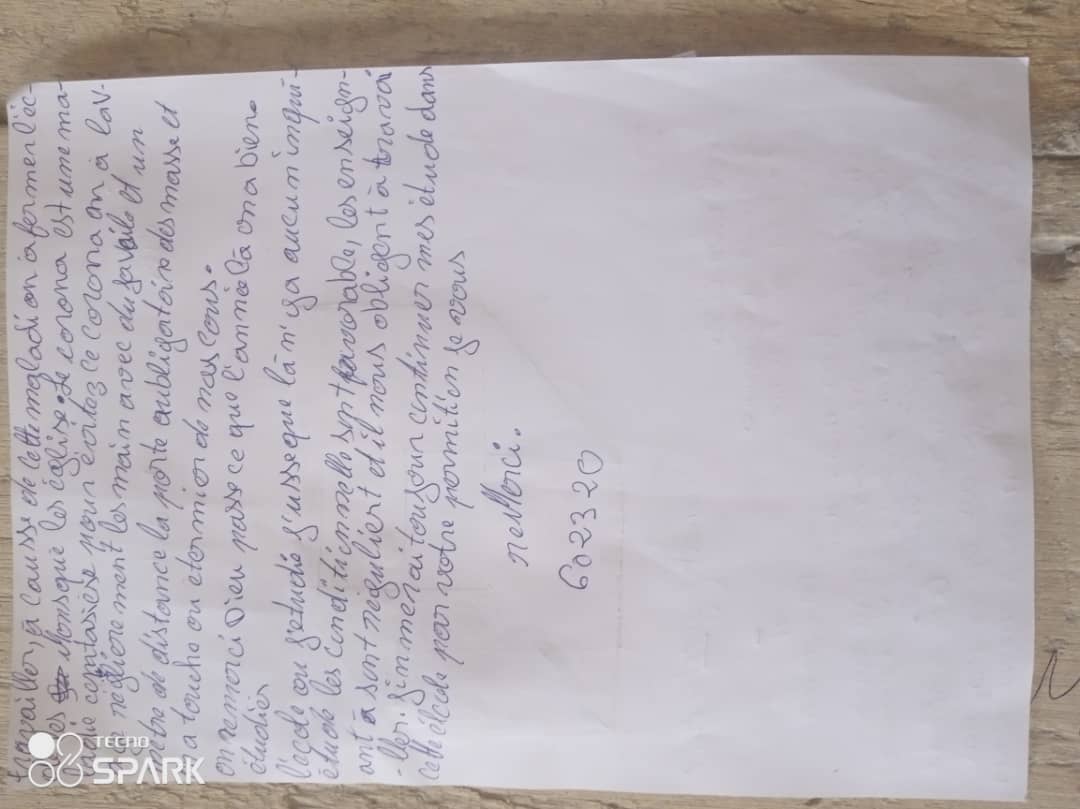 travailler, à causse de cette maladi on a fermer l'éc-
oles Mosque les église. Le corona est une ma-
ladie contasiése pour évitez ce corona on a lav-
ge réglièrement les main avec du javile et un
mètre de distance la porte aubligatoire des masse et
sa touche ou eternier de mas cous.
on remerci Dieu passe que l'année là on a bien
étudier
l'ecole ou j'etudié j'usseque là n'ya aucun inqui-
étude les condition nelle sont favorable, les enseign-
ant à sont régulient et il nous obligent à trava
-ller. j'in merai toujour continuer mes étude dans
cette école par votre permition je vous
remerci.
602320
TECNO
SPARK